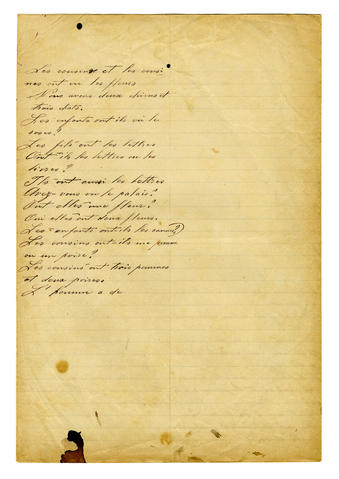 Les cousins et les cousi
nes ont vu les fleurs
Nous avons deux chiens et
trois chats.
Les enfants ont ils vu le
Les fils ont les lettres
Ont ils les lettres ou les
livres?
Ils ont aussi les lettres
Avez vous vu le palais?
Ont elles une fleur?
Oui elles ont deux fleurs.
Les enfants ont ils les
Les cousins ont ils une
ou un poire?
Les cousins ont trois pommes
et deux poires.
L'homme a de